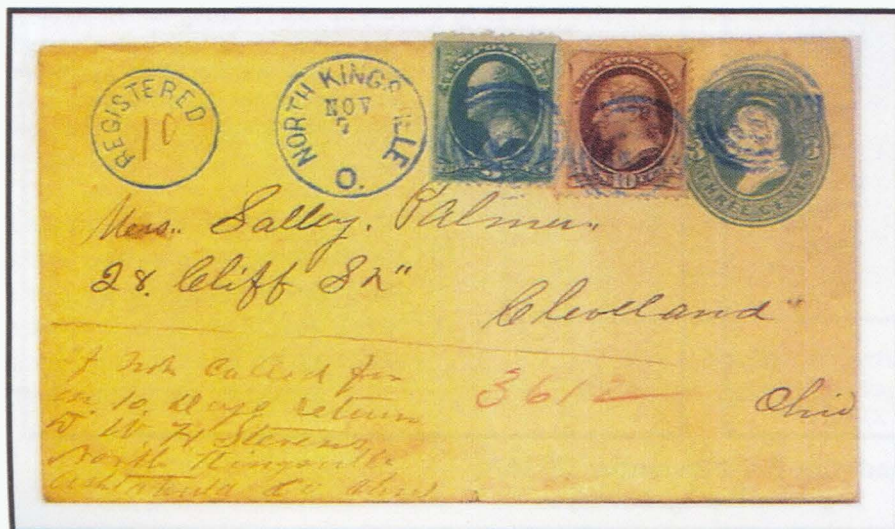 REGISTERED
10
NORTH KINGSVILLE
NOV
7
O.
U.S. POSTAGE
3
U.S. POSTAGE
10
3 3
THREE CENTS
Mrs. Salley. Palmer
28. Cliff St"
Cleveland"
Ohio
3612
If not called for
in 10 days return
to W. H Stevens
North Kingsville
Ashtabula Co Ohio